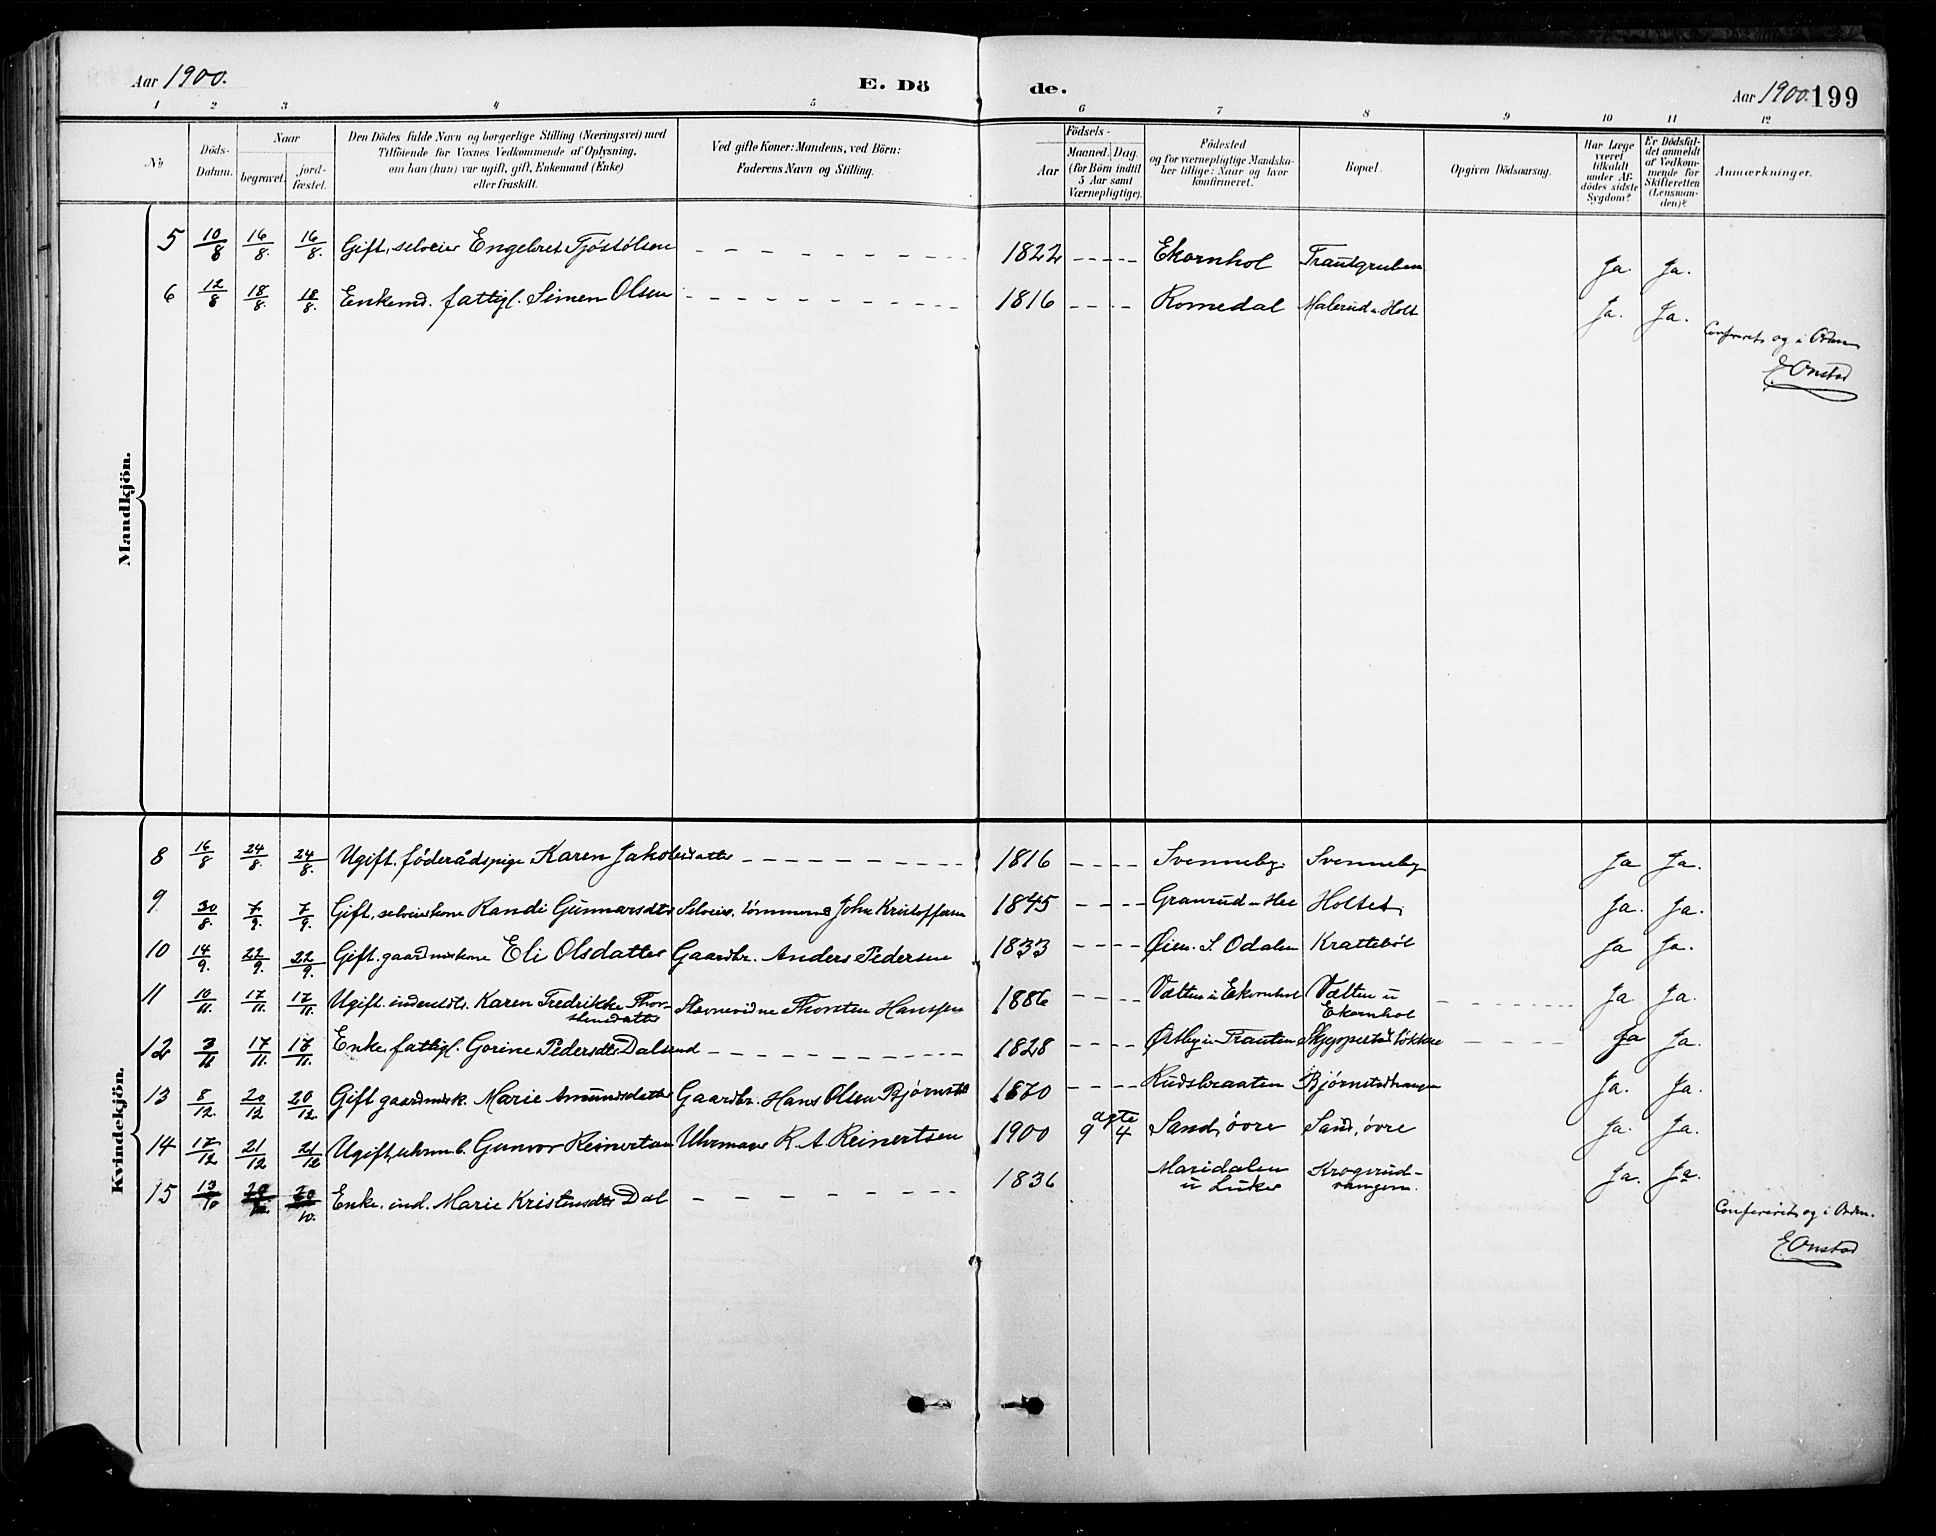 Aar 1900.
E. Dö
de.
Aar 1900. 199
1 2 3 4 5 6 7 8 9 10 11 12
No
Döds-Datum.
Naar
begravet.
jord-fæstet.
Den Dödes fulde Navn og borgerlige Stilling (Næringsvei) med
Tilföiende for Voxnes Vedkommende af Oplysning,
om han (hun) var ugift, gift, Enkemand (Enke)
eller fraskilt.
Ved gifte Koner: Mandens, ved Börn:
Faderens Navn og Stilling.
Födsels-
Aar
Maaned. Dag.
(for Börn indtil
5 Aar samt
Værnepligtige).
Födested
og for værnepligtige Mandska-
ber tillige: Naar og hvor
konfirmeret.
Bopæl.
Opgiven Dödsaarsag.
Har Læge
været
tilkaldt
under Af-
dödes sidste
Sygdom?
Er Dödsfal-
det anmeldt
af Vedkom-
mende for
Skifteretten
(Lensman-
den)?
Anmærkninger.
Mandkjön.
5 10/8 16/8. 16/8. Gift, selveier Engebret Tjöstölsen 1822 Ekornhol Trautgruben Ja. Ja.
6 12/8 18/8. 18/8. Enkemd. fattigl. Simen Olsen 1816 Romedal Malerud u. Holt Ja. Ja.
Confereret og i Orden
E. Onstad
Kvindekjön.
8 16/8 24/8. 24/8. Ugift. föderådspige Karen Jakobsdatter 1816 Svenneby. Svenneby Ja Ja.
9 30/8. 7/9. 7/9. Gift, selveierkone Randi Gunnarsdtr Selveier, tömmerm John Kristoffersen 1845 Granrud - Hee Holtet. Ja. Ja.
10 14/9. 22/9. 22/9. Gift. gaardmkone Eli Olsdatter Gaardbr. Anders Pedersen 1833 Øien. S. Odalen Krattebøl Ja Ja.
11 10/11. 17/11. 17/11. Ugift. Karen Fredrikke Thor-
stensdatter Thorsten Hanssen 1886 Vælten u Ekornhol Vælten u
Ekornhol Ja. Ja.
12 3/11 17/11. 17/11. Enke, fattigl. Gorine Pedersdtr. Dalsrud 1828 Østby i Trauten Ja Ja.
13 8/12 20/12 20/12 Gift gaardmsk. Marie Amundsdatter Gaardbr. Hans Olsen Bjørnst 1870 Rudsbraaten Bjørnstadvangen Ja. Ja.
14 17/12 21/12 21/12 Ugift, uhrm b. Gunvor Reinertsen Uhrmager R. A. Reinertsen 1900 ægte 9 4 Sand, övre Sand, övre Ja. Ja.
15 13/10 20 20/10. Enke. ind. Marie Kristensdtr Dal 1836 Maridalen
u Luker Krogsrud-
vangen. Ja. Ja.
Confereret og i Orden.
E. Onstad